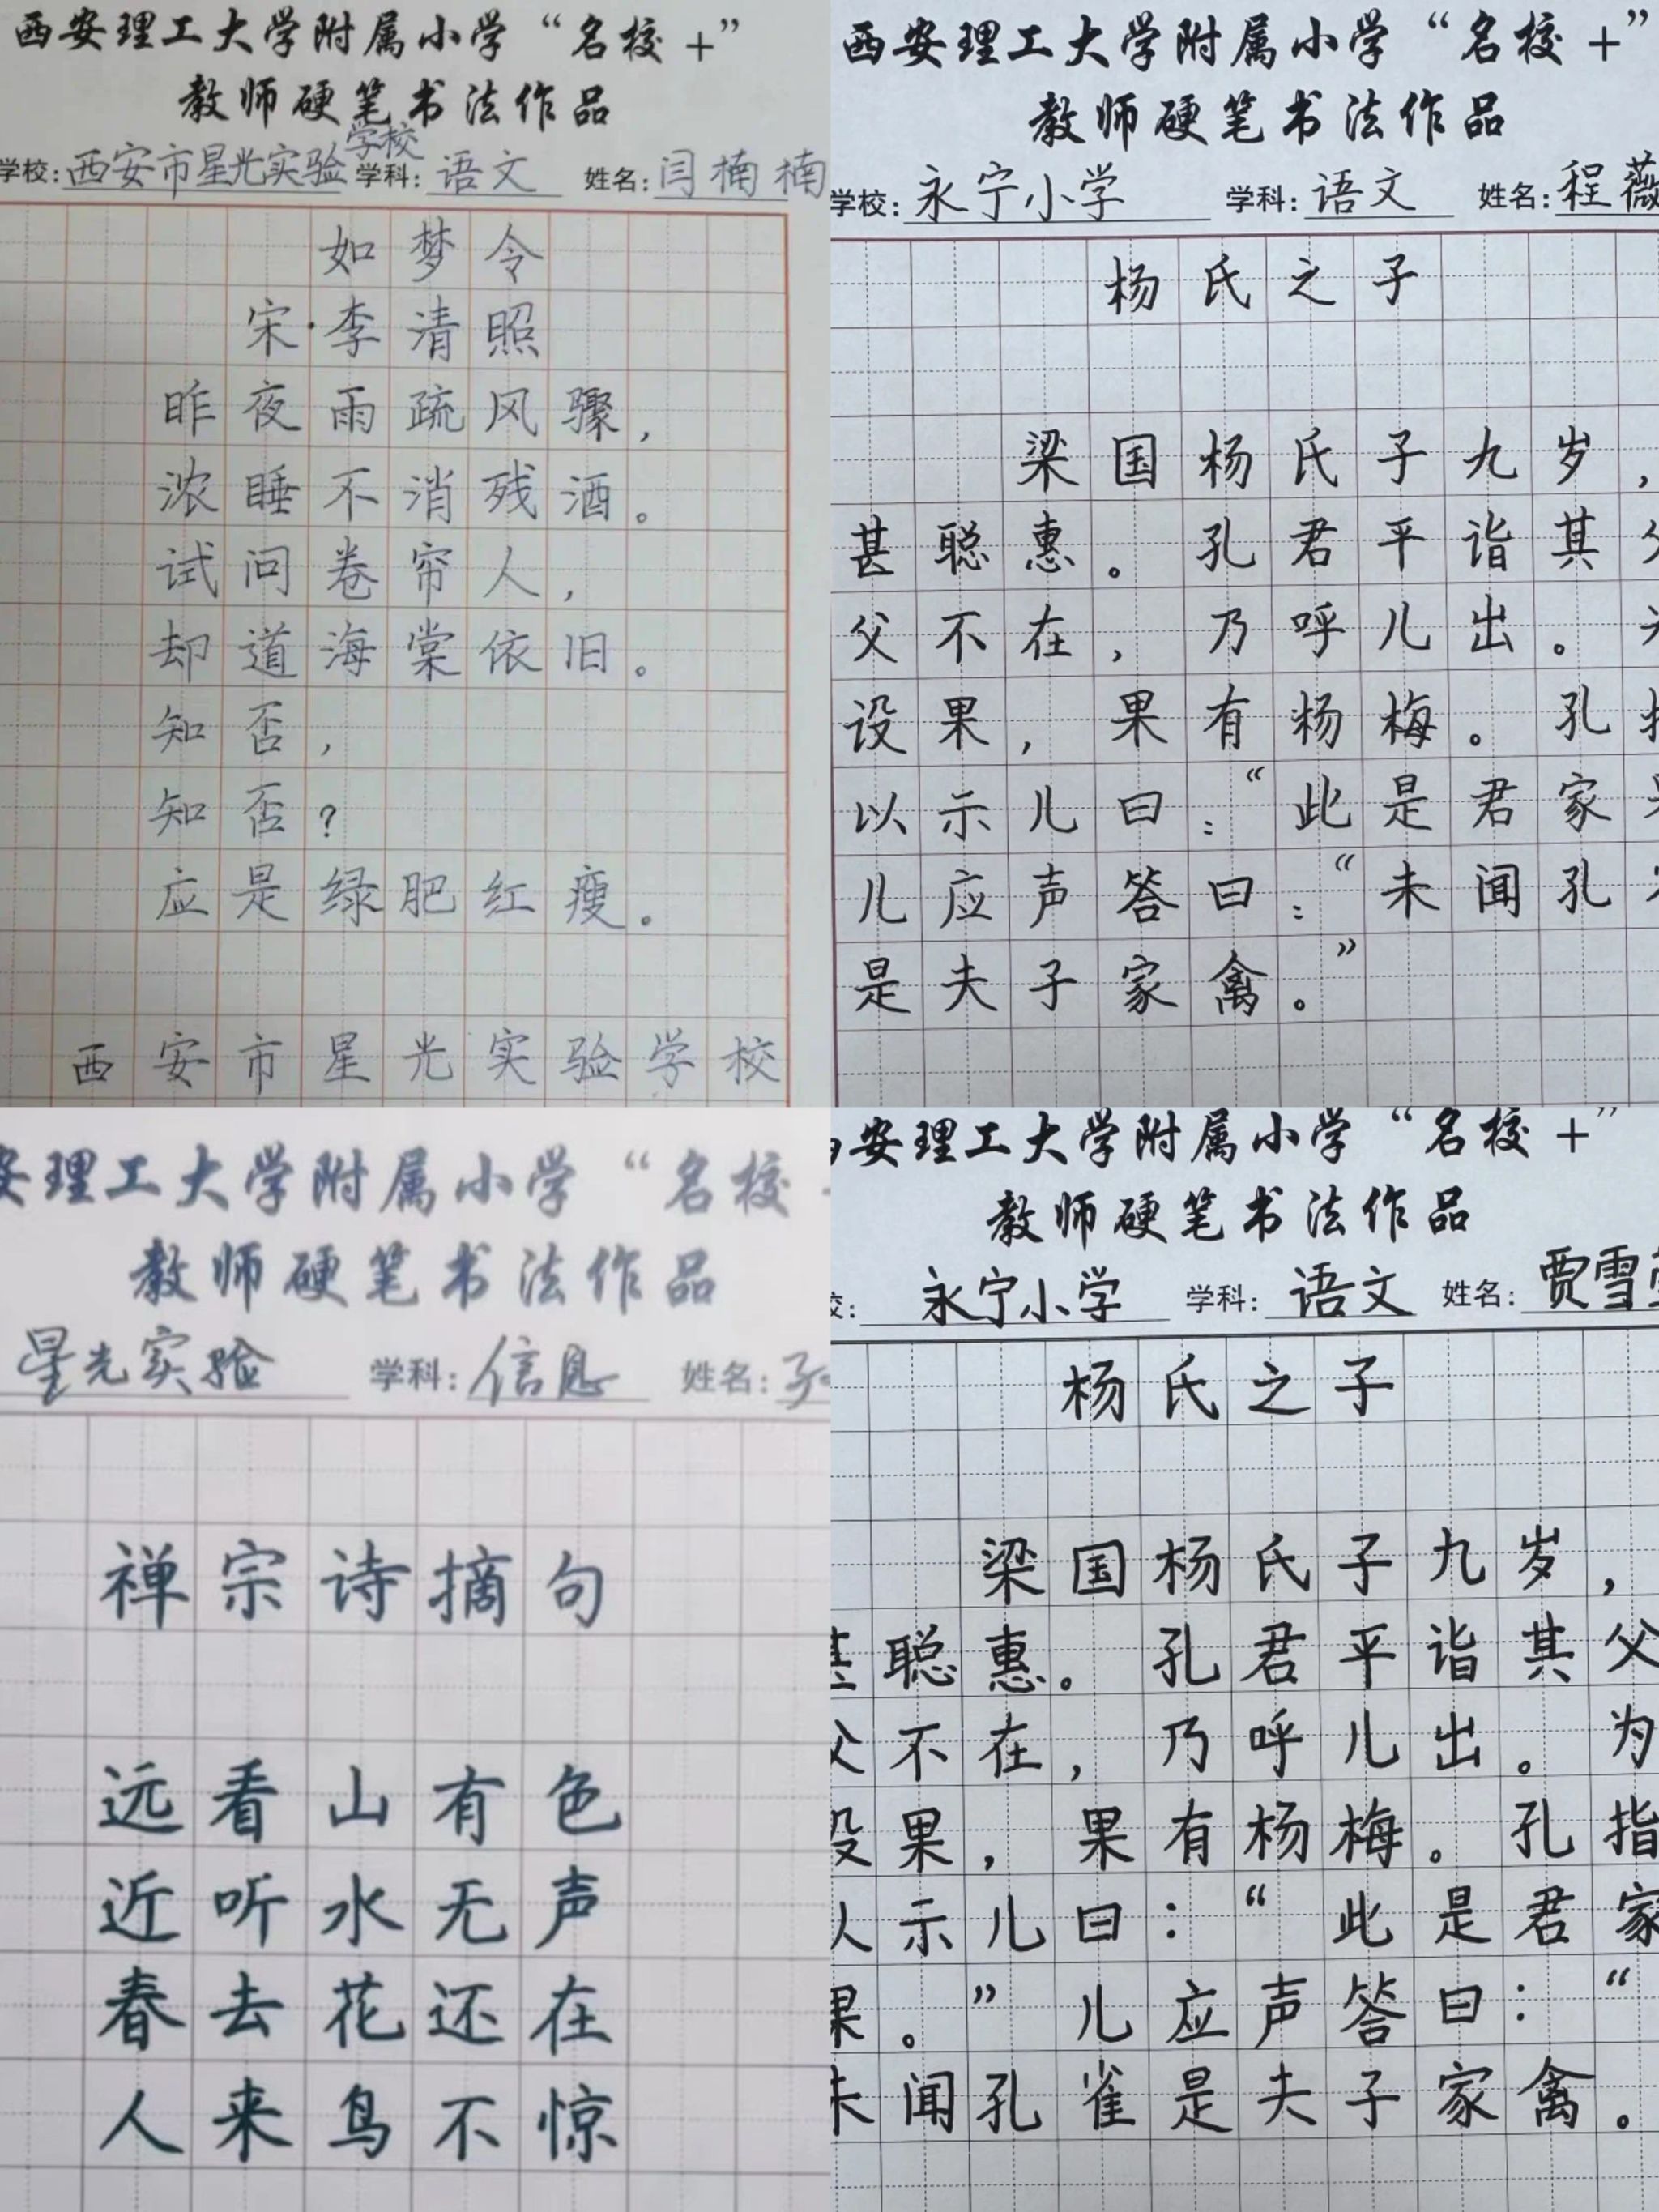 西安理工大学附属小学“名校+”
教师硬笔书法作品
学校:西安市星光实验学校 学科:语文 姓名:闫楠楠
如梦令
宋·李清照
昨夜雨疏风骤,
浓睡不消残酒。
试问卷帘人,
却道海棠依旧。
知否,
知否?
应是绿肥红瘦。
西安市星光实验学校
西安理工大学附属小学“名校+”
教师硬笔书法作品
学校:永宁小学 学科:语文 姓名:程薇
杨氏之子
梁国杨氏子九岁,
甚聪惠。孔君平诣其
父不在,乃呼儿出。
设果,果有杨梅。孔
以示儿曰:“此是君家
儿应声答曰:“未闻孔
是夫子家禽。”
安理工大学附属小学“名校
教师硬笔书法作品
星光实验 学科:信息 姓名:
禅宗诗摘句
远看山有色
近听水无声
春去花还在
人来鸟不惊
安理工大学附属小学“名校+”
教师硬笔书法作品
校:永宁小学 学科:语文 姓名:贾雪
杨氏之子
梁国杨氏子九岁,
甚聪惠。孔君平诣其父
父不在,乃呼儿出。为
设果,果有杨梅。孔指
以示儿曰:“此是君家
果。”儿应声答曰:“
未闻孔雀是夫子家禽。